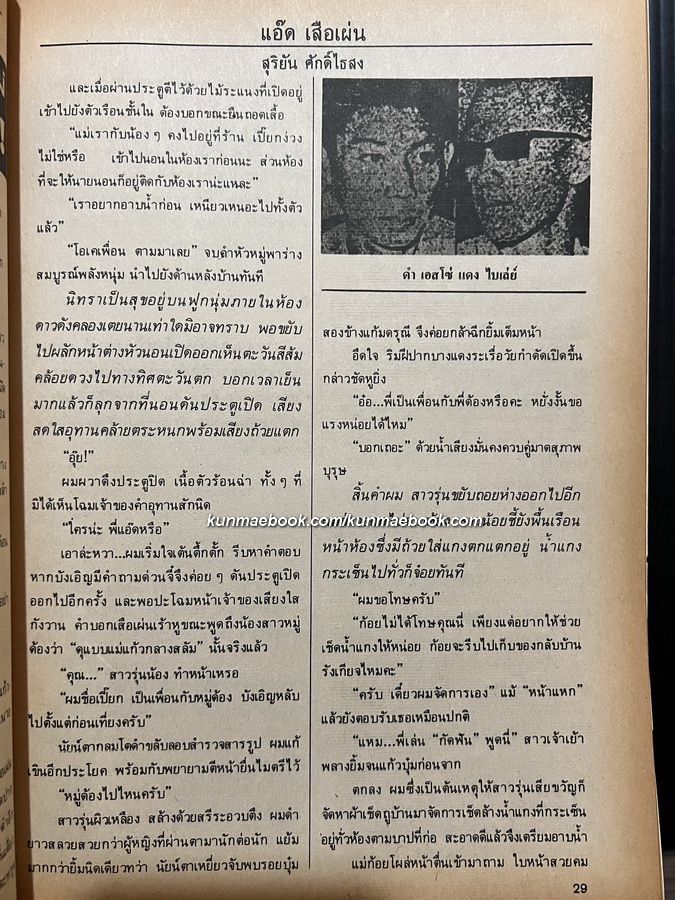 แอ๊ด เสือเผ่น
สุริยัน ศักดิ์ไธสง
และเมื่อผ่านประตูตีไว้ด้วยไม้ระแนงที่เปิดอยู่
เข้าไปยังตัวเรือนชั้นใน ต้องบอกขณะยืนถอดเสื้อ
“แม่เรากับน้อง ๆ คงไปอยู่ที่ร้าน เปี๊ยกง่วง
ไม่ใช่หรือ เข้าไปนอนในห้องเราก่อนนะ ส่วนห้อง
ที่จะให้นายนอนก็อยู่ติดกับห้องเราน่ะแหละ”
“เราอยากอาบน้ำก่อน เหนียวเหนอะไปทั้งตัว
แล้ว”
“โอเคเพื่อน ตามมาเลย” จบคำหัวหมู่พาร่าง
สมบูรณ์พลังหนุ่ม นำไปยังด้านหลังบ้านทันที
นิทราเป็นสุขอยู่บนฟูกนุ่มภายในห้อง
ดาวดังคลองเตยนานเท่าใดมิอาจทราบ พอขยับ
ไปผลักหน้าต่างหัวนอนเปิดออกเห็นตะวันสีส้ม
คล้อยดวงไปทางทิศตะวันตก บอกเวลาเย็น
มากแล้วก็ลุกจากที่นอนดันประตูเปิด เสียง
สดใสอุทานคล้ายตระหนกพร้อมเสียงถ้วยแตก
“อุ๊ย!”
ผมผวาดึงประตูปิด เนื้อตัวร้อนฉ่า ทั้ง ๆ ที่
มิได้เห็นโฉมเจ้าของคำอุทานสักนิด
“ใครน่ะ พี่แอ๊ดหรือ”
เอาล่ะหวา...ผมเริ่มใจเต้นตึ้กตั้ก รีบหาคำตอบ
หากบังเอิญมีคำถามด่วนจี๋จึงค่อย ๆ ดันประตูเปิด
ออกไปอีกครั้ง และพอปะโฉมหน้าเจ้าของเสียงใส
กังวาน คำบอกเสือเผ่นเร้าหูขณะพูดถึงน้องสาวหมู่
ต้องว่า “ดุแบบแม่แก้วกลางสลัม” นั้นจริงแล้ว
“คุณ...” สาวรุ่นน้อง ทำหน้าเหรอ
“ผมชื่อเปี๊ยก เป็นเพื่อนกับหมู่ต้อง บังเอิญหลับ
ไปตั้งแต่ก่อนเที่ยงครับ”
นัยน์ตากลมโตดำขลับลอบสำรวจสารรูป ผมแก้
เขินอีกประโยค พร้อมกับพยายามตีหน้ายื่นไมตรีไว้
“หมู่ต้องไปไหนครับ”
สาวรุ่นผิวเหลือง สล้างด้วยสรีระอวบตึง ผมดำ
ยาวสลวยสวยกว่าผู้หญิงที่ผ่านตามานักต่อนัก แย้ม
มากกว่ายิ้มนิดเดียวทว่า นัยน์ตาเหยี่ยวจับพบรอยบุ๋ม
ดำ เอสโซ่ แดง ไบเล่ย์
สองข้างแก้มดรุณี จึงค่อยกล้าฉีกยิ้มเต็มหน้า
อึดใจ ริมฝีปากบางแดงระเรื่อวัยกำดัดเปิดขึ้น
กล่าวชัดหูยิ่ง
“อ๋อ...พี่เป็นเพื่อนกับพี่ต้องหรือคะ หยั่งงั้นขอ
แรงหน่อยได้ไหม”
“บอกเถอะ” ด้วยน้ำเสียงมั่นคงควบคู่มาดสุภาพ
บุรุษ
สิ้นคำผม สาวรุ่นขยับถอยห่างออกไปอีก
น้อยชี้ยังพื้นเรือน
หน้าห้องซึ่งมีถ้วยใส่แกงตกแตกอยู่ น้ำแกง
กระเซ็นไปทั่วก็จ๋อยทันที
“ผมขอโทษครับ”
“ก้อยไม่ได้โทษคุณนี่ เพียงแต่อยากให้ช่วย
เช็ดน้ำแกงให้หน่อย ก้อยจะรีบไปเก็บของกลับบ้าน
รังเกียจไหมคะ”
“ครับ เดี๋ยวผมจัดการเอง” แม้ “หน้าแหก”
แล้วยังตอบรับเธอเหมือนปกติ
“แหม...พี่เล่น “กัดฟัน” พูดนี่” สาวเจ้าเย้า
พลางยิ้มจนแก้มบุ๋มก่อนจาก
ตกลง ผมซึ่งเป็นต้นเหตุให้สาวรุ่นเสียขวัญก็
จัดหาผ้าเช็ดถูบ้านมาจัดการเช็ดล้างน้ำแกงที่กระเซ็น
อยู่ทั่วห้องตามบาปที่ก่อ สะอาดดีแล้วจึงเตรียมอาบน้ำ
แม่ก้อยโผล่หน้าตื่นเข้ามาถาม ใบหน้าสวยคม
kunmaebook.com/kunmaebook.com
29